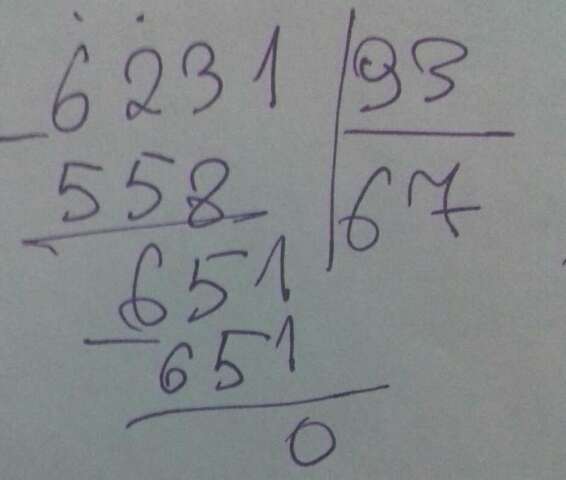 6231 | 93
- 558 | 67
651
- 651
0